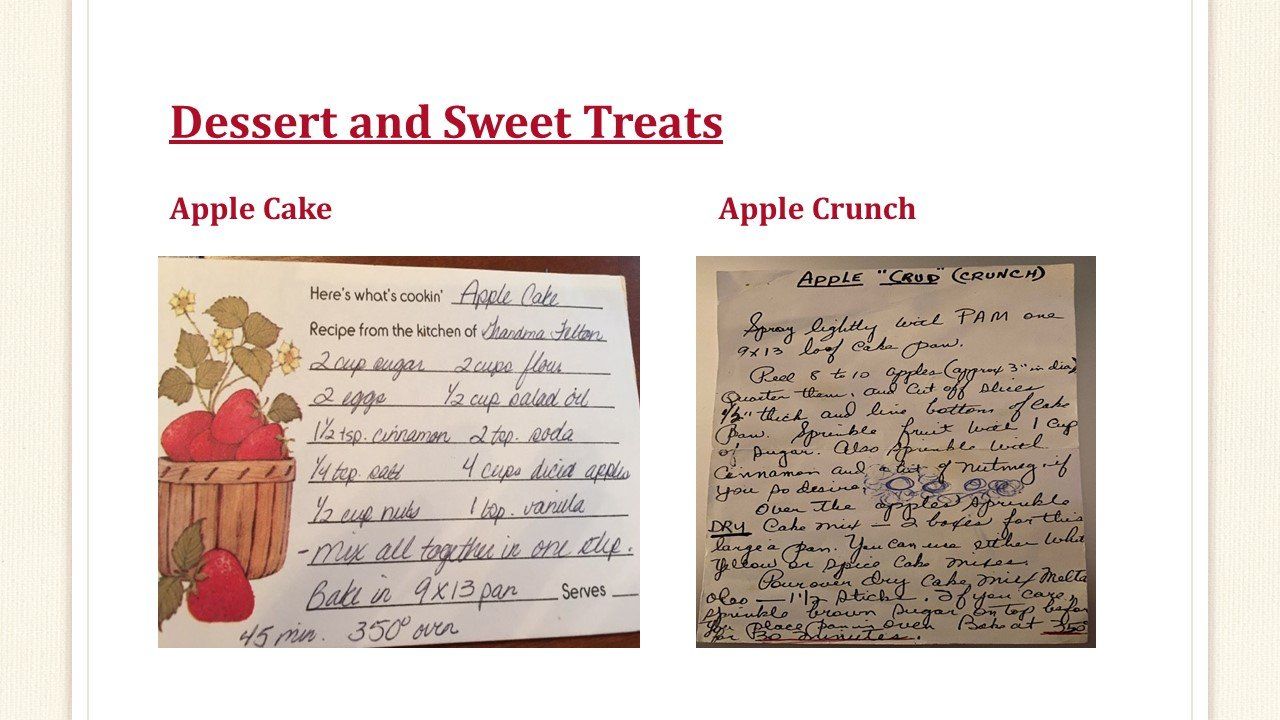 Dessert and Sweet Treats
Apple Cake
Here's what's cookin' Apple Cake
Recipe from the kitchen of Grandma Felton
2 cup sugar 2 cups flour
2 eggs 1/2 cup salad oil
1 1/2 tsp. cinnamon 2 tsp. soda
1/4 tsp salt 4 cups diced apples
1/2 cup nuts 1 tsp. vanilla
- mix all together in one step.
Bake in 9x13 pan Serves
45 min. 350° oven
Apple Crunch
APPLE "CRUD" (CRUNCH)
Spray lightly with PAM one
9x13 loaf cake pan.
Peel 8 to 10 apples (approx 3" in dia)
Quarter them, and cut off slices
1/2" thick and line bottom of cake
pan. Sprinkle fruit with 1 cup
of sugar. Also sprinkle with
Cinnamon and a bit of nutmeg if
you so desire.
Over the apples sprinkle
DRY Cake mix — 2 boxes for this
large a pan. You can use either White
Yellow or spice cake mixes.
Pour over dry cake mix melted
oleo — 1 1/2 sticks. If you care,
sprinkle brown sugar on top before
you place pan in oven. Bake at 350°
for 30 minutes.